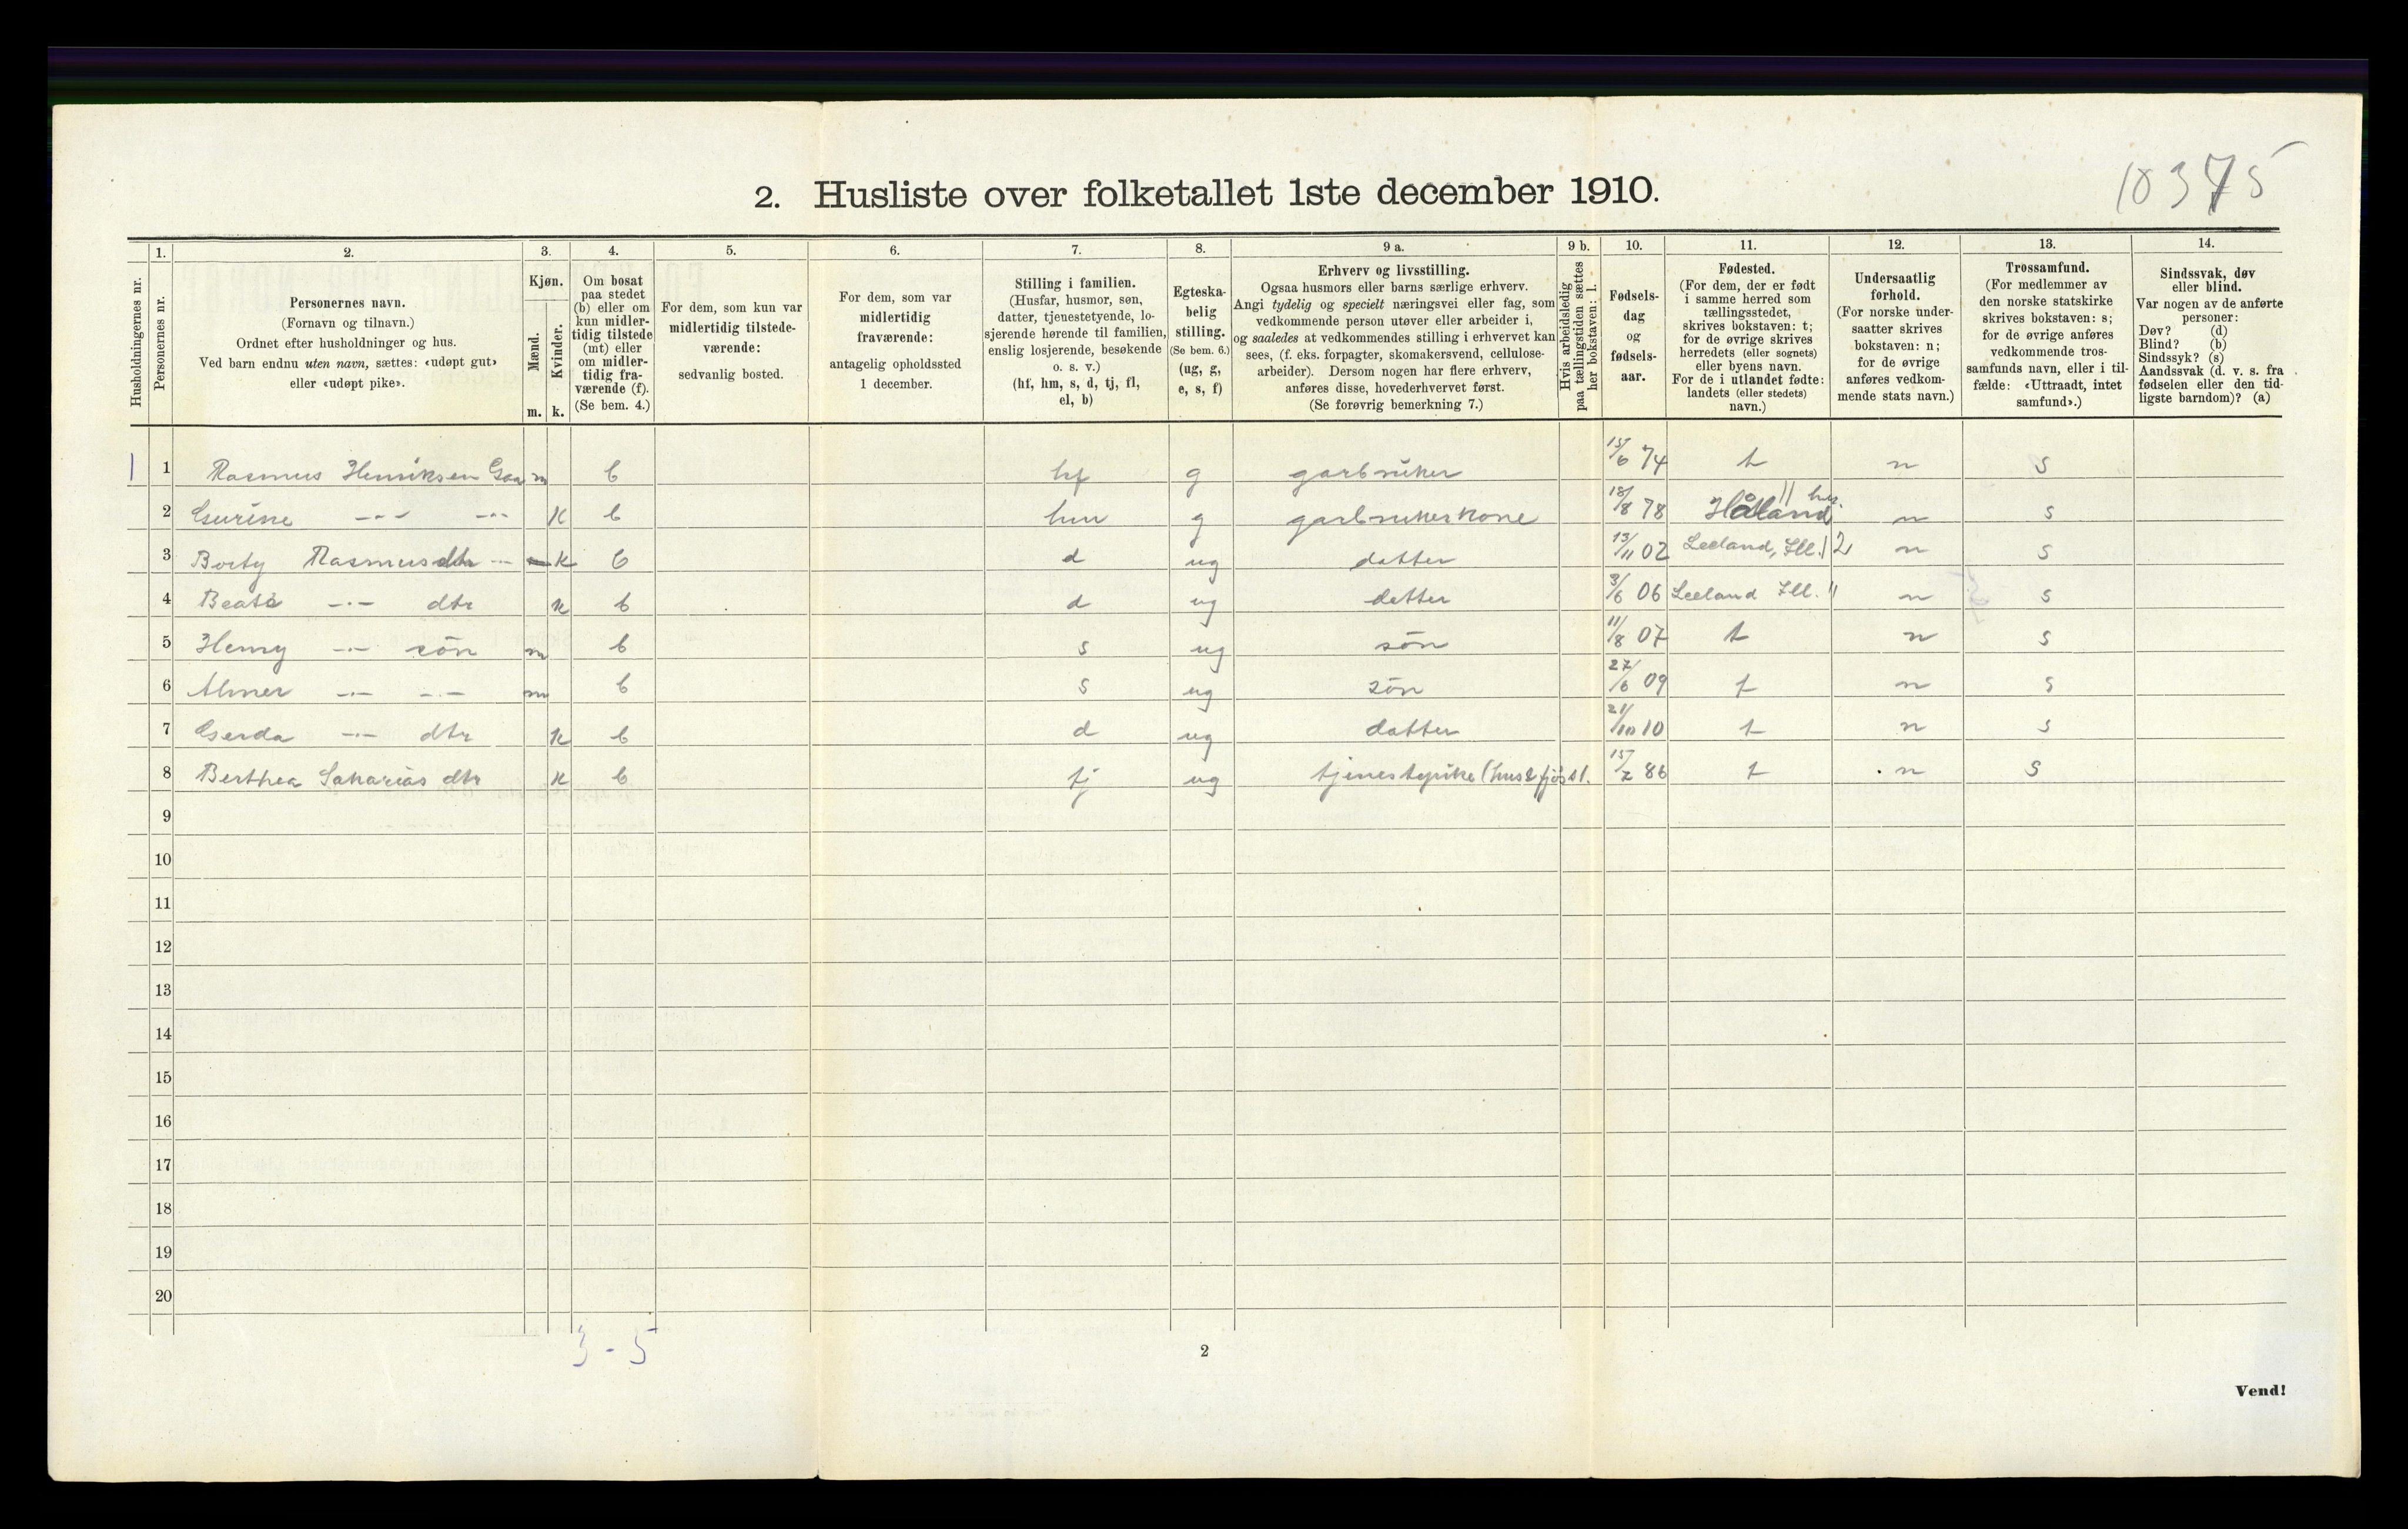 10375
2. Husliste over folketallet 1ste december 1910.
Husholdningernes nr.
1.
Personernes nr.
2.
Personernes navn.
(Fornavn og tilnavn.)
Ordnet efter husholdninger og hus.
Ved barn endnu uten navn, sættes: «udøpt gut»
eller «udøpt pike».
3.
Kjøn.
Mænd.
Kvinder.
m. k.
4.
Om bosat
paa stedet
(b) eller om
kun midler-
tidig tilstede
(mt) eller
om midler-
tidig fra-
værende (f).
(Se bem. 4.)
5.
For dem, som kun var
midlertidig tilstede-
værende:
sedvanlig bosted.
6.
For dem, som var
midlertidig
fraværende:
antagelig opholdssted
1 december.
7.
Stilling i familien.
(Husfar, husmor, søn,
datter, tjenestetyende, lo-
sjerende hørende til familien,
enslig losjerende, besøkende
o. s. v.)
(hf, hm, s, d, tj, fl,
el, b)
8.
Egteska-
belig
stilling.
(Se bem. 6.)
(ug, g,
e, s, f)
9 a.
Erhverv og livsstilling.
Ogsaa husmors eller barns særlige erhverv.
Angi tydelig og specielt næringsvei eller fag, som
vedkommende person utøver eller arbeider i,
og saaledes at vedkommendes stilling i erhvervet kan
sees, (f. eks. forpagter, skomakersvend, cellulose-
arbeider). Dersom nogen har flere erhverv,
anføres disse, hovederhvervet først.
(Se forøvrig bemerkning 7.)
9 b.
Hvis arbeidsledig
paa tællingstiden sættes
her bokstaven: l.
10.
Fødsels-
dag
og
fødsels-
aar.
11.
Fødested.
(For dem, der er født
i samme herred som
tællingsstedet,
skrives bokstaven: t;
for de øvrige skrives
herredets (eller sognets)
eller byens navn.
For de i utlandet fødte:
landets (eller stedets)
navn.)
12.
Undersaatlig
forhold.
(For norske under-
saatter skrives
bokstaven: n;
for de øvrige
anføres vedkom-
mende stats navn.)
13.
Trossamfund.
(For medlemmer av
den norske statskirke
skrives bokstaven: s;
for de øvrige anføres
vedkommende tros-
samfunds navn, eller i til-
fælde: «Uttraadt, intet
samfund».)
14.
Sindssvak, døv
eller blind.
Var nogen av de anførte
personer:
Døv? (d)
Blind? (b)
Sindssyk? (s)
Aandssvak (d. v. s. fra
fødselen eller den tid-
ligste barndom)? (a)
1 1 Rasmus Henriksen m b hf g garbruker 15/6 74 t n s
2 Gurine -"- -"- k b hm g garbrukerkone 18/8 78 Håland n s
3 Rasmusdtr -"- k b d ug datter 13/11 02 n s
4 Beate -"- dtr k b d ug datter 3/6 06 n s
5 Henry -"- søn m b s ug søn 11/8 07 t n s
6 Almer -"- -"- m b s ug søn 27/6 09 t n s
7 Gerda -"- dtr k b d ug datter 21/10 10 t n s
8 Berthea Sakarias dtr k b tj ug tjenestepike (hus & fjøsst. 15/2 86 t n s
9
10
11
12
13
14
15
16
17
18
19
20
3 - 5
2
Vend!